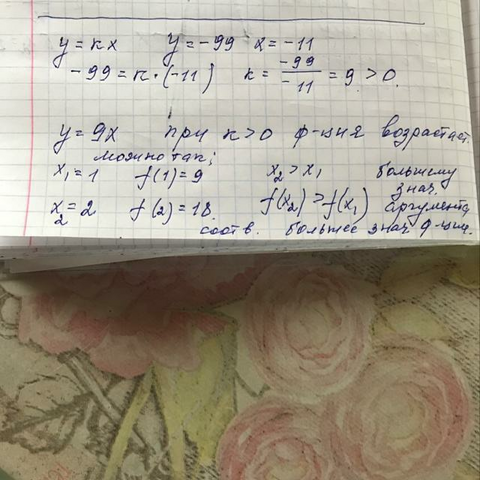 y = kx y = -99 x = -11
-99 = k·(-11) k = -99/-11 = 9 > 0
y = 9x при k>0 ф-ция возрастает.
можно так;
x₁ = 1 f(1) = 9 x₂ > x₁ большему
знач.
x₂ = 2 f(2) = 18. f(x₂) > f(x₁) аргумента
соотв. большее знач ф-ции.